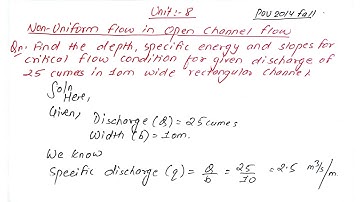 Unit :- 8
POU 2014 fall
Non-Uniform flow in open channel flow
Qn. Find the depth, specific energy and slopes for
critical flow condition for given discharge of
25 cumecs in 10m wide rectangular channel
Soln
Here,
Given,
Discharge (Q) = 25 cumecs
Width (b) = 10m.
We know
Specific discharge (q) = Q/b = 25/10 = 2.5 m³/s/m.